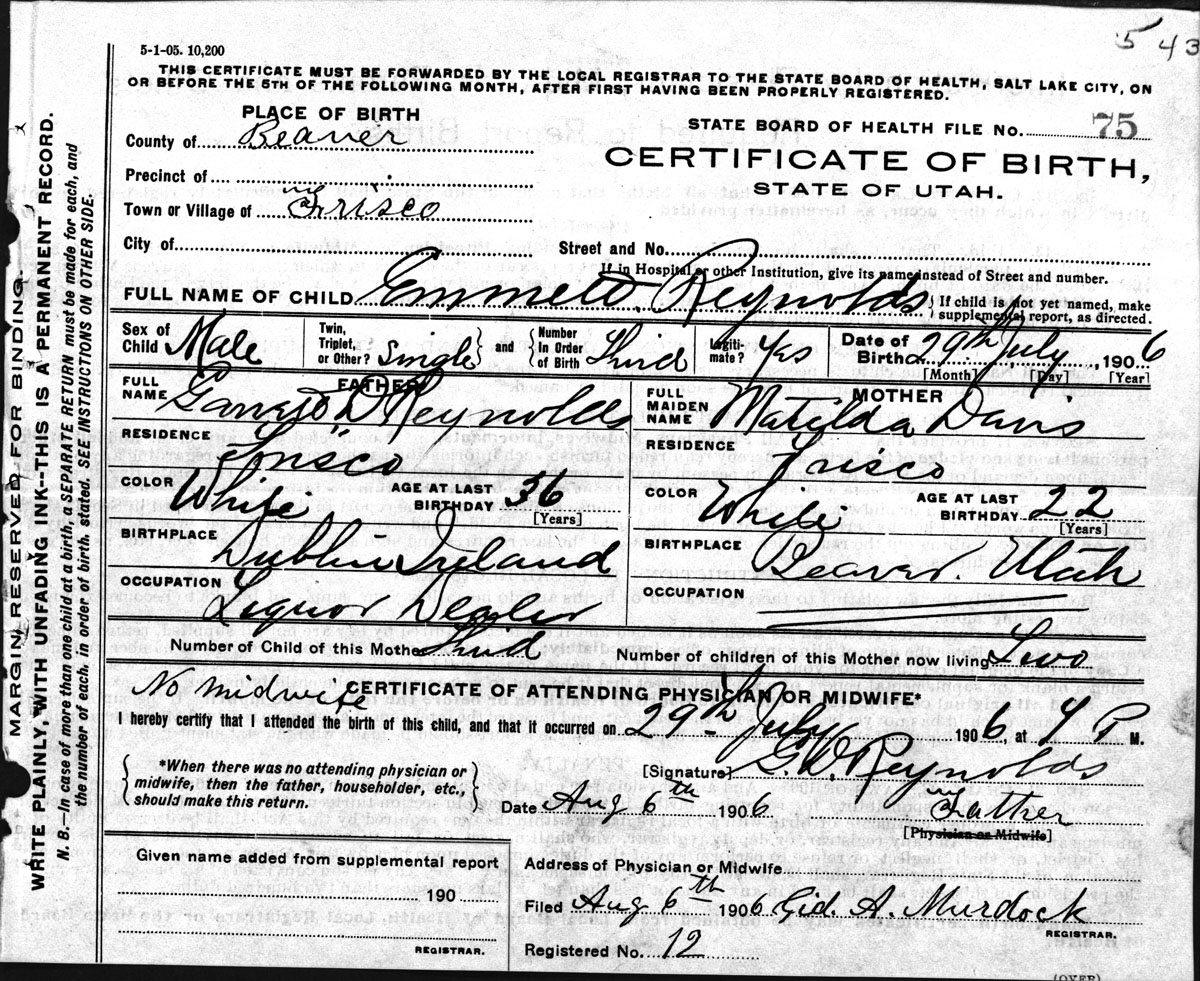 5 43
5-1-05. 10,200
THIS CERTIFICATE MUST BE FORWARDED BY THE LOCAL REGISTRAR TO THE STATE BOARD OF HEALTH, SALT LAKE CITY, ON
OR BEFORE THE 5TH OF THE FOLLOWING MONTH, AFTER FIRST HAVING BEEN PROPERLY REGISTERED.
PLACE OF BIRTH
County of Beaver
Precinct of
Town or Village of Frisco
City of
STATE BOARD OF HEALTH FILE No. 75
CERTIFICATE OF BIRTH,
STATE OF UTAH.
Street and No.
If in Hospital or other Institution, give its name instead of Street and number.
FULL NAME OF CHILD Emmett Reynolds { If child is not yet named, make
supplemental report, as directed.
Sex of Child Male Twin, Triplet, or Other? Single } and { Number In Order of Birth Third Legitimate? Yes Date of Birth 29th July, 1906
[Month] [Day] [Year]
FATHER
FULL NAME D Reynolds
RESIDENCE Frisco
COLOR White AGE AT LAST BIRTHDAY 36
[Years]
BIRTHPLACE Dublin Ireland
OCCUPATION Liquor Dealer
MOTHER
FULL MAIDEN NAME Matilda Davis
RESIDENCE Frisco
COLOR White AGE AT LAST BIRTHDAY. 22
[Years]
BIRTHPLACE Beaver. Utah
OCCUPATION
Number of Child of this Mother Third Number of children of this Mother now living Two
No midwife
CERTIFICATE OF ATTENDING PHYSICIAN OR MIDWIFE*
I hereby certify that I attended the birth of this child, and that it occurred on 29th July 1906, at 4 P M.
{ *When there was no attending physician or
midwife, then the father, householder, etc.,
should make this return. }
[Signature] G. D. Reynolds
Date Aug 6th 1906 Father
[Physician or Midwife]
Given name added from supplemental report
190
REGISTRAR.
Address of Physician or Midwife
Filed Aug 6th 1906 Gid. A. Murdock
REGISTRAR.
Registered No. 12
(OVER)
MARGIN RESERVED FOR BINDING.
WRITE PLAINLY, WITH UNFADING INK--THIS IS A PERMANENT RECORD.
N. B.--In case of more than one child at a birth, a SEPARATE RETURN must be made for each, and
the number of each, in order of birth, stated. SEE INSTRUCTIONS ON OTHER SIDE.